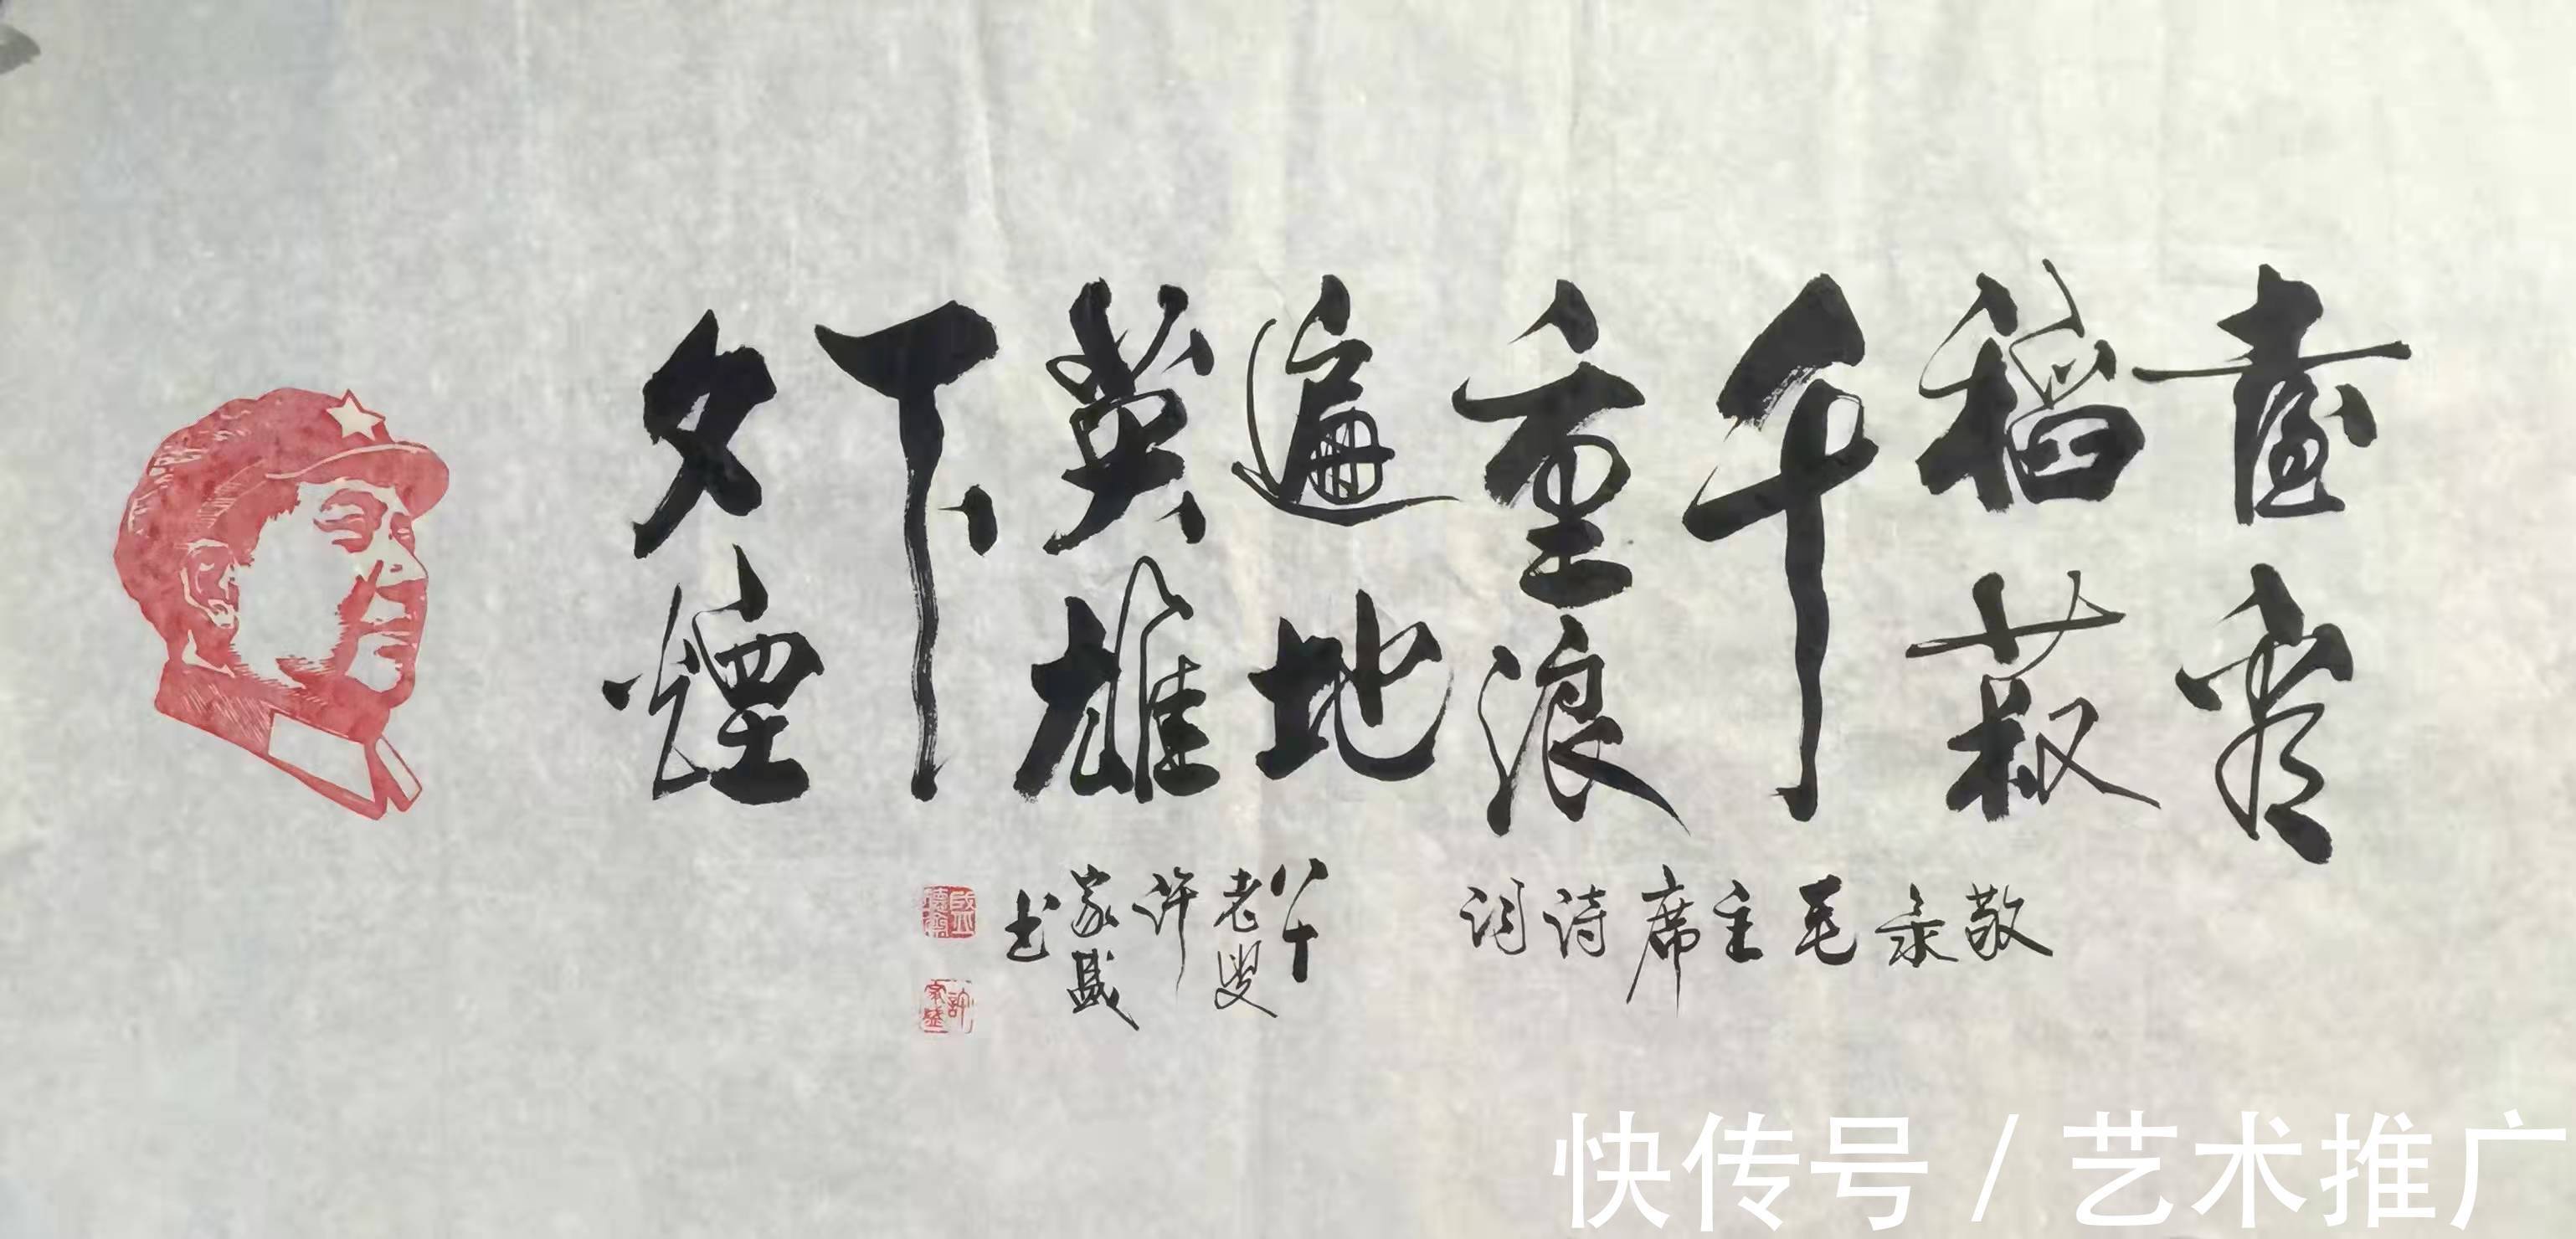 喜看
稻菽
千
重浪
遍地
英雄
下
夕煙
敬录毛主席诗词
八十老叟许家盛书
許家盛
快传号 / 艺术推广